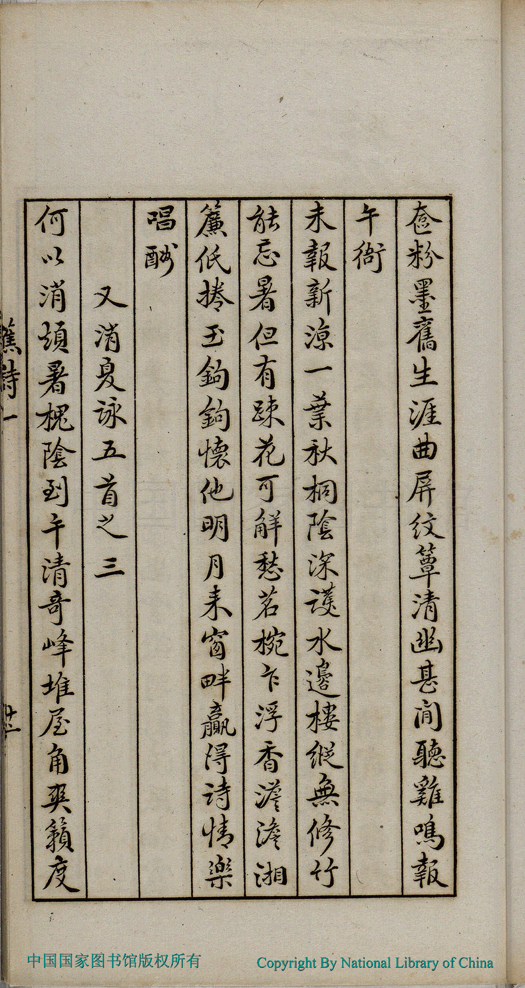 奩粉墨舊生涯曲屏紋簟清幽甚閒聽雞鳴報
午衙
未報新涼一葉秋桐陰深護水邊樓縱無修竹
能忘暑但有疎花可解愁茗椀乍浮香澹澹湘
簾低捲玉鉤鉤懷他明月来窗畔贏得詩情樂
唱酬
又消夏詠五首之三
何以消煩暑槐陰到午清奇峰堆屋角爽籟度
蕉詩一
廿二
中国国家图书馆版权所有
Copyright By National Library of China